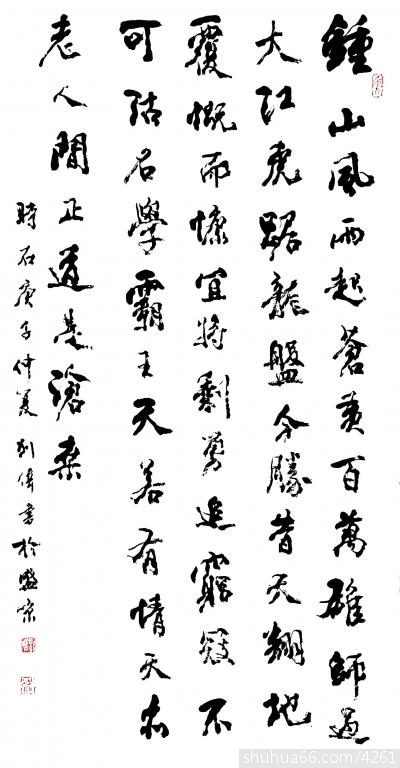 鍾山風雨起蒼黃百萬雄師過
大江虎踞龍盤今勝昔天翻地
覆慨而慷宜將剩勇追窮寇不
可沽名學霸王天若有情天亦
老人間正道是滄桑
時在庚子仲夏 偉書於盛
shuhua66.com/4261